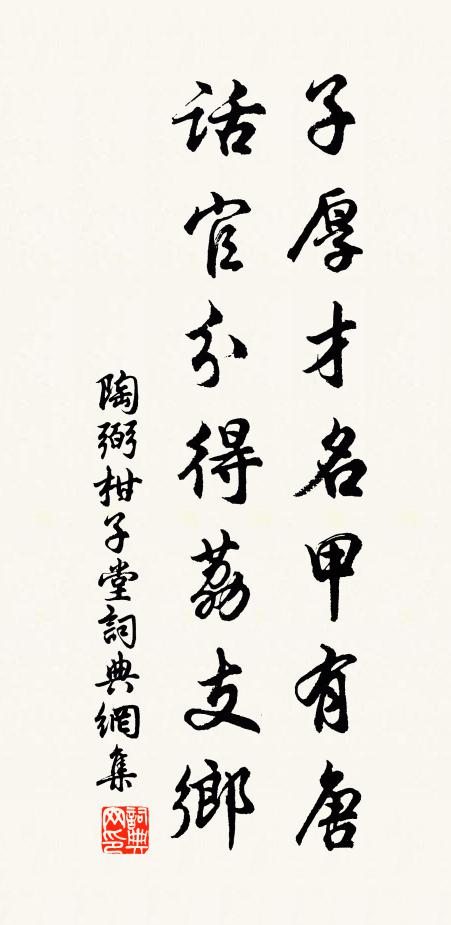 子厚才名甲有唐
話官分得荔支鄉
陶弼柑子堂詞典網集
詞典
网印